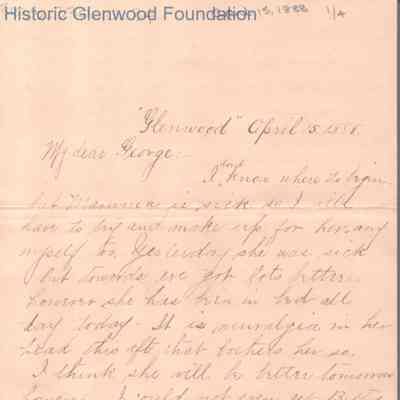 Historic Glenwood Foundation
15, 1888 1/4
"Glenwood" April 15. 1888.
My dear George:-
I don't know where to begin
but Mamma is sick so I
have to try and make up for her, any
myself too. Yesterday she was sick
but towards eve got lots better
however she has been in bed all
day today. It is neuralgia in her
head this aft. that bothers her so.
I think she will be better tomorrow
I could not even get